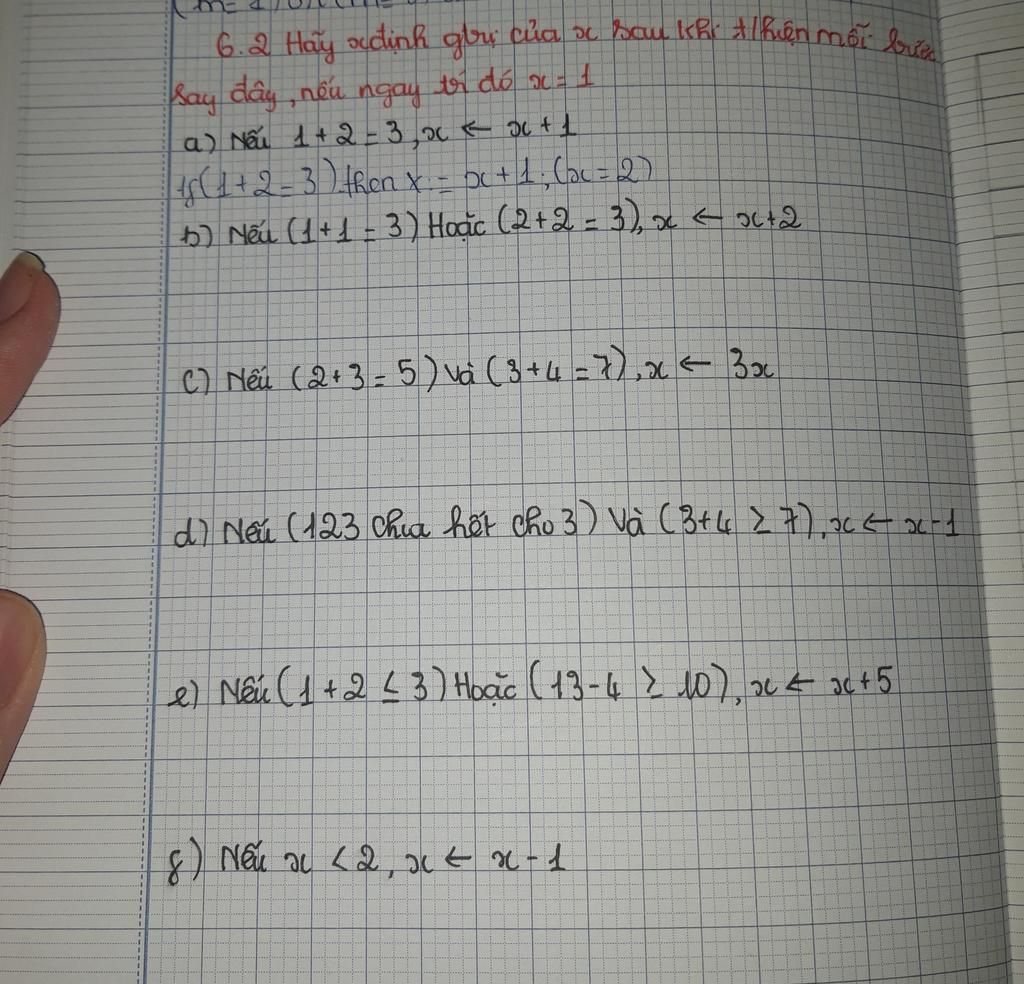 6.2 Hãy xđịnh gtrị của x sau khi thiện mỗi
Say đây, nếu ngay tới đó x = 1
a) Nếu 1 + 2 = 3, x ← x + 1
If(1 + 2 = 3) then x := x + 1; (x = 2)
b) Nếu (1 + 1 = 3) Hoặc (2 + 2 = 3), x ← x + 2
c) Nếu (2 + 3 = 5) và (3 + 4 = 7), x ← 3x
d) Nếu (123 chia hết cho 3) Và (3 + 4 ≥ 7), x ← x - 1
e) Nếu (1 + 2 ≤ 3) Hoặc (13 - 4 ≥ 10), x ← x + 5
g) Nếu x < 2, x ← x - 1